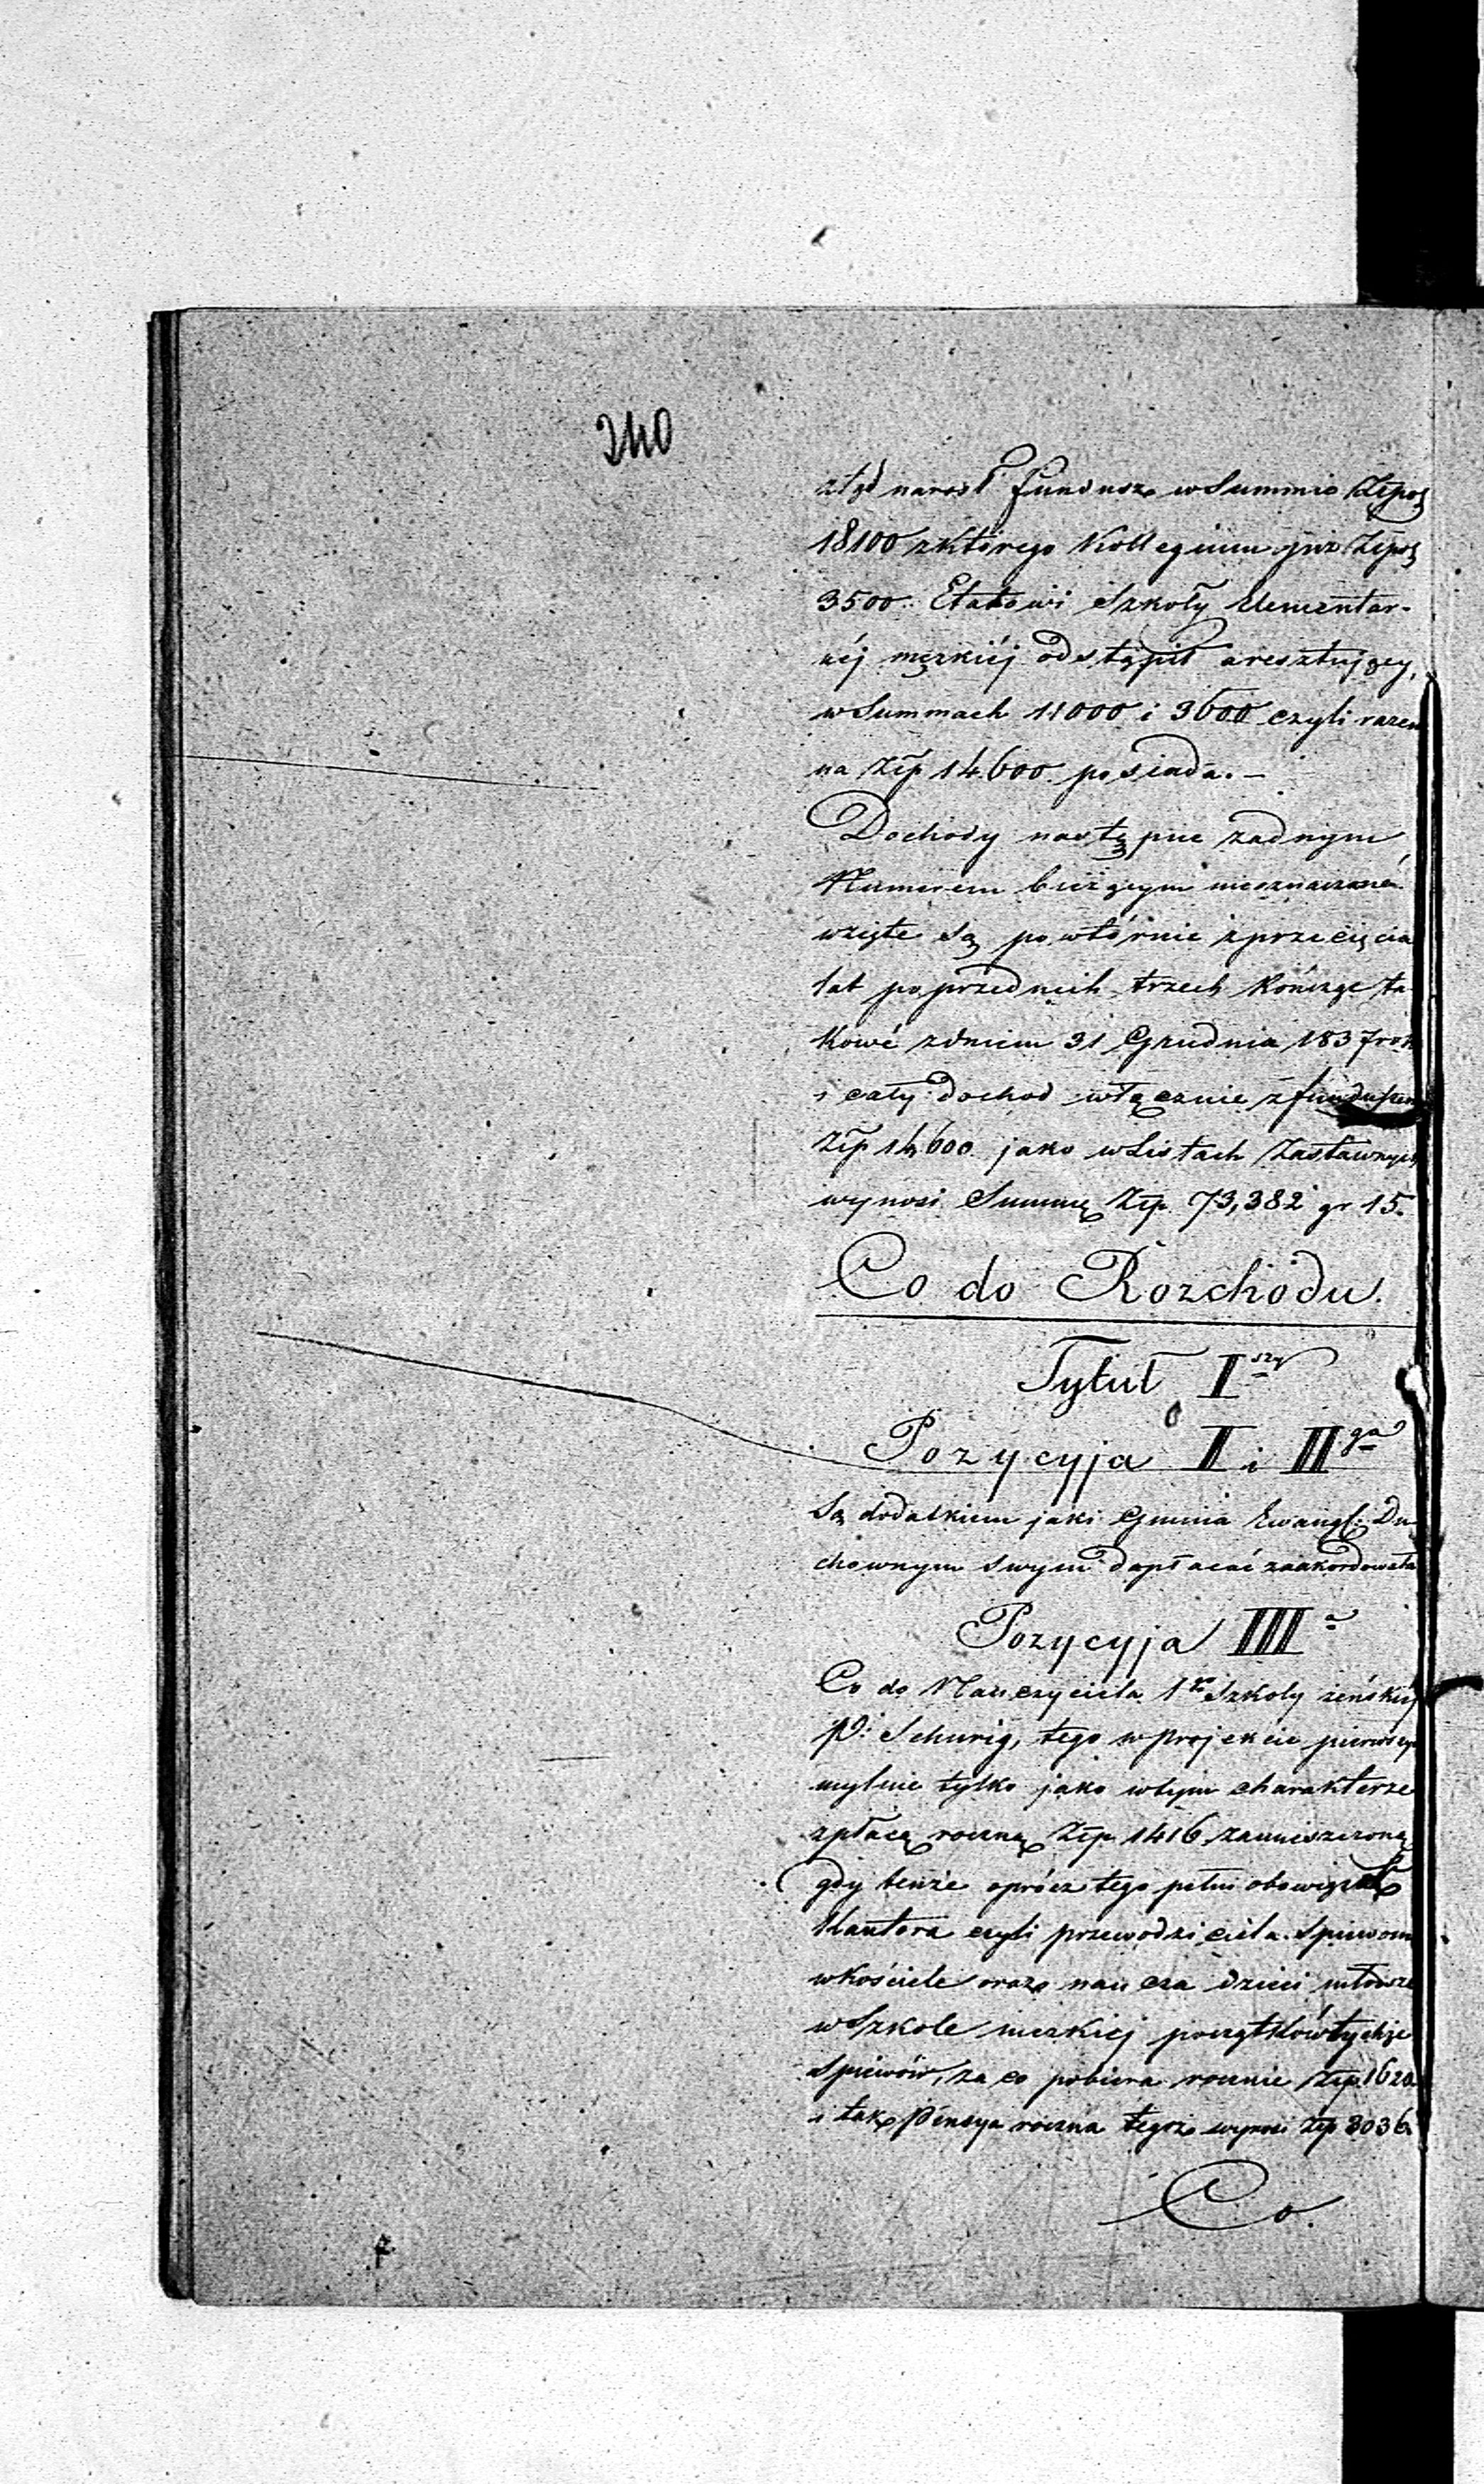 240
ztąd narosł fundusz w Summie Złpol
18100 zktórego Kollegium już Złpol
3500. Etatowi Szkoły Elementar-
néj męzkiéj odstąpił aresztujący,
w Summach 11000 i 3600 czyli razem
na Złp 14600 posiada. –
Dochody następne żadnym
Numerem bieżącym nieoznaczone
wzięte są powtórnie zprzecięcia
lat poprzednich trzech kończąc ta-
kowé zdniem 31 Grudnia 1837 rok
i cały dochod włącznie z funduszem
Złp 14600 jako w Listach Zastawnych
wynosi Summę Złp. 73,382 gr 15.
Co do Rozchodu.
Tytuł I szy
Pozycyja I i II ga
Są dodatkiem jaki Gmina Ewangl: Du-
chownym swym dopłacać zaakordowała
Pozycyja III a
Co do Nauczyciela 1 go Szkoły żeńskiéj
P: Schurig, tego w projekcie pierwszym
mylnie tylko jako wtym charakterze
zpłacą roczną Złp. 1416 zamieszczoną
gdy tenże oprócz tego pełni obowiązek
Kantora czyli przewodziciela Spiewom
wkościele oraz naucza dzieci młodsze
w Szkole męzkiej początków tychże
Spiewów, za co pobiera rocznie Złp. 1620
i tak Pensya roczna tegoż wynosi Złp 3036.
Co.